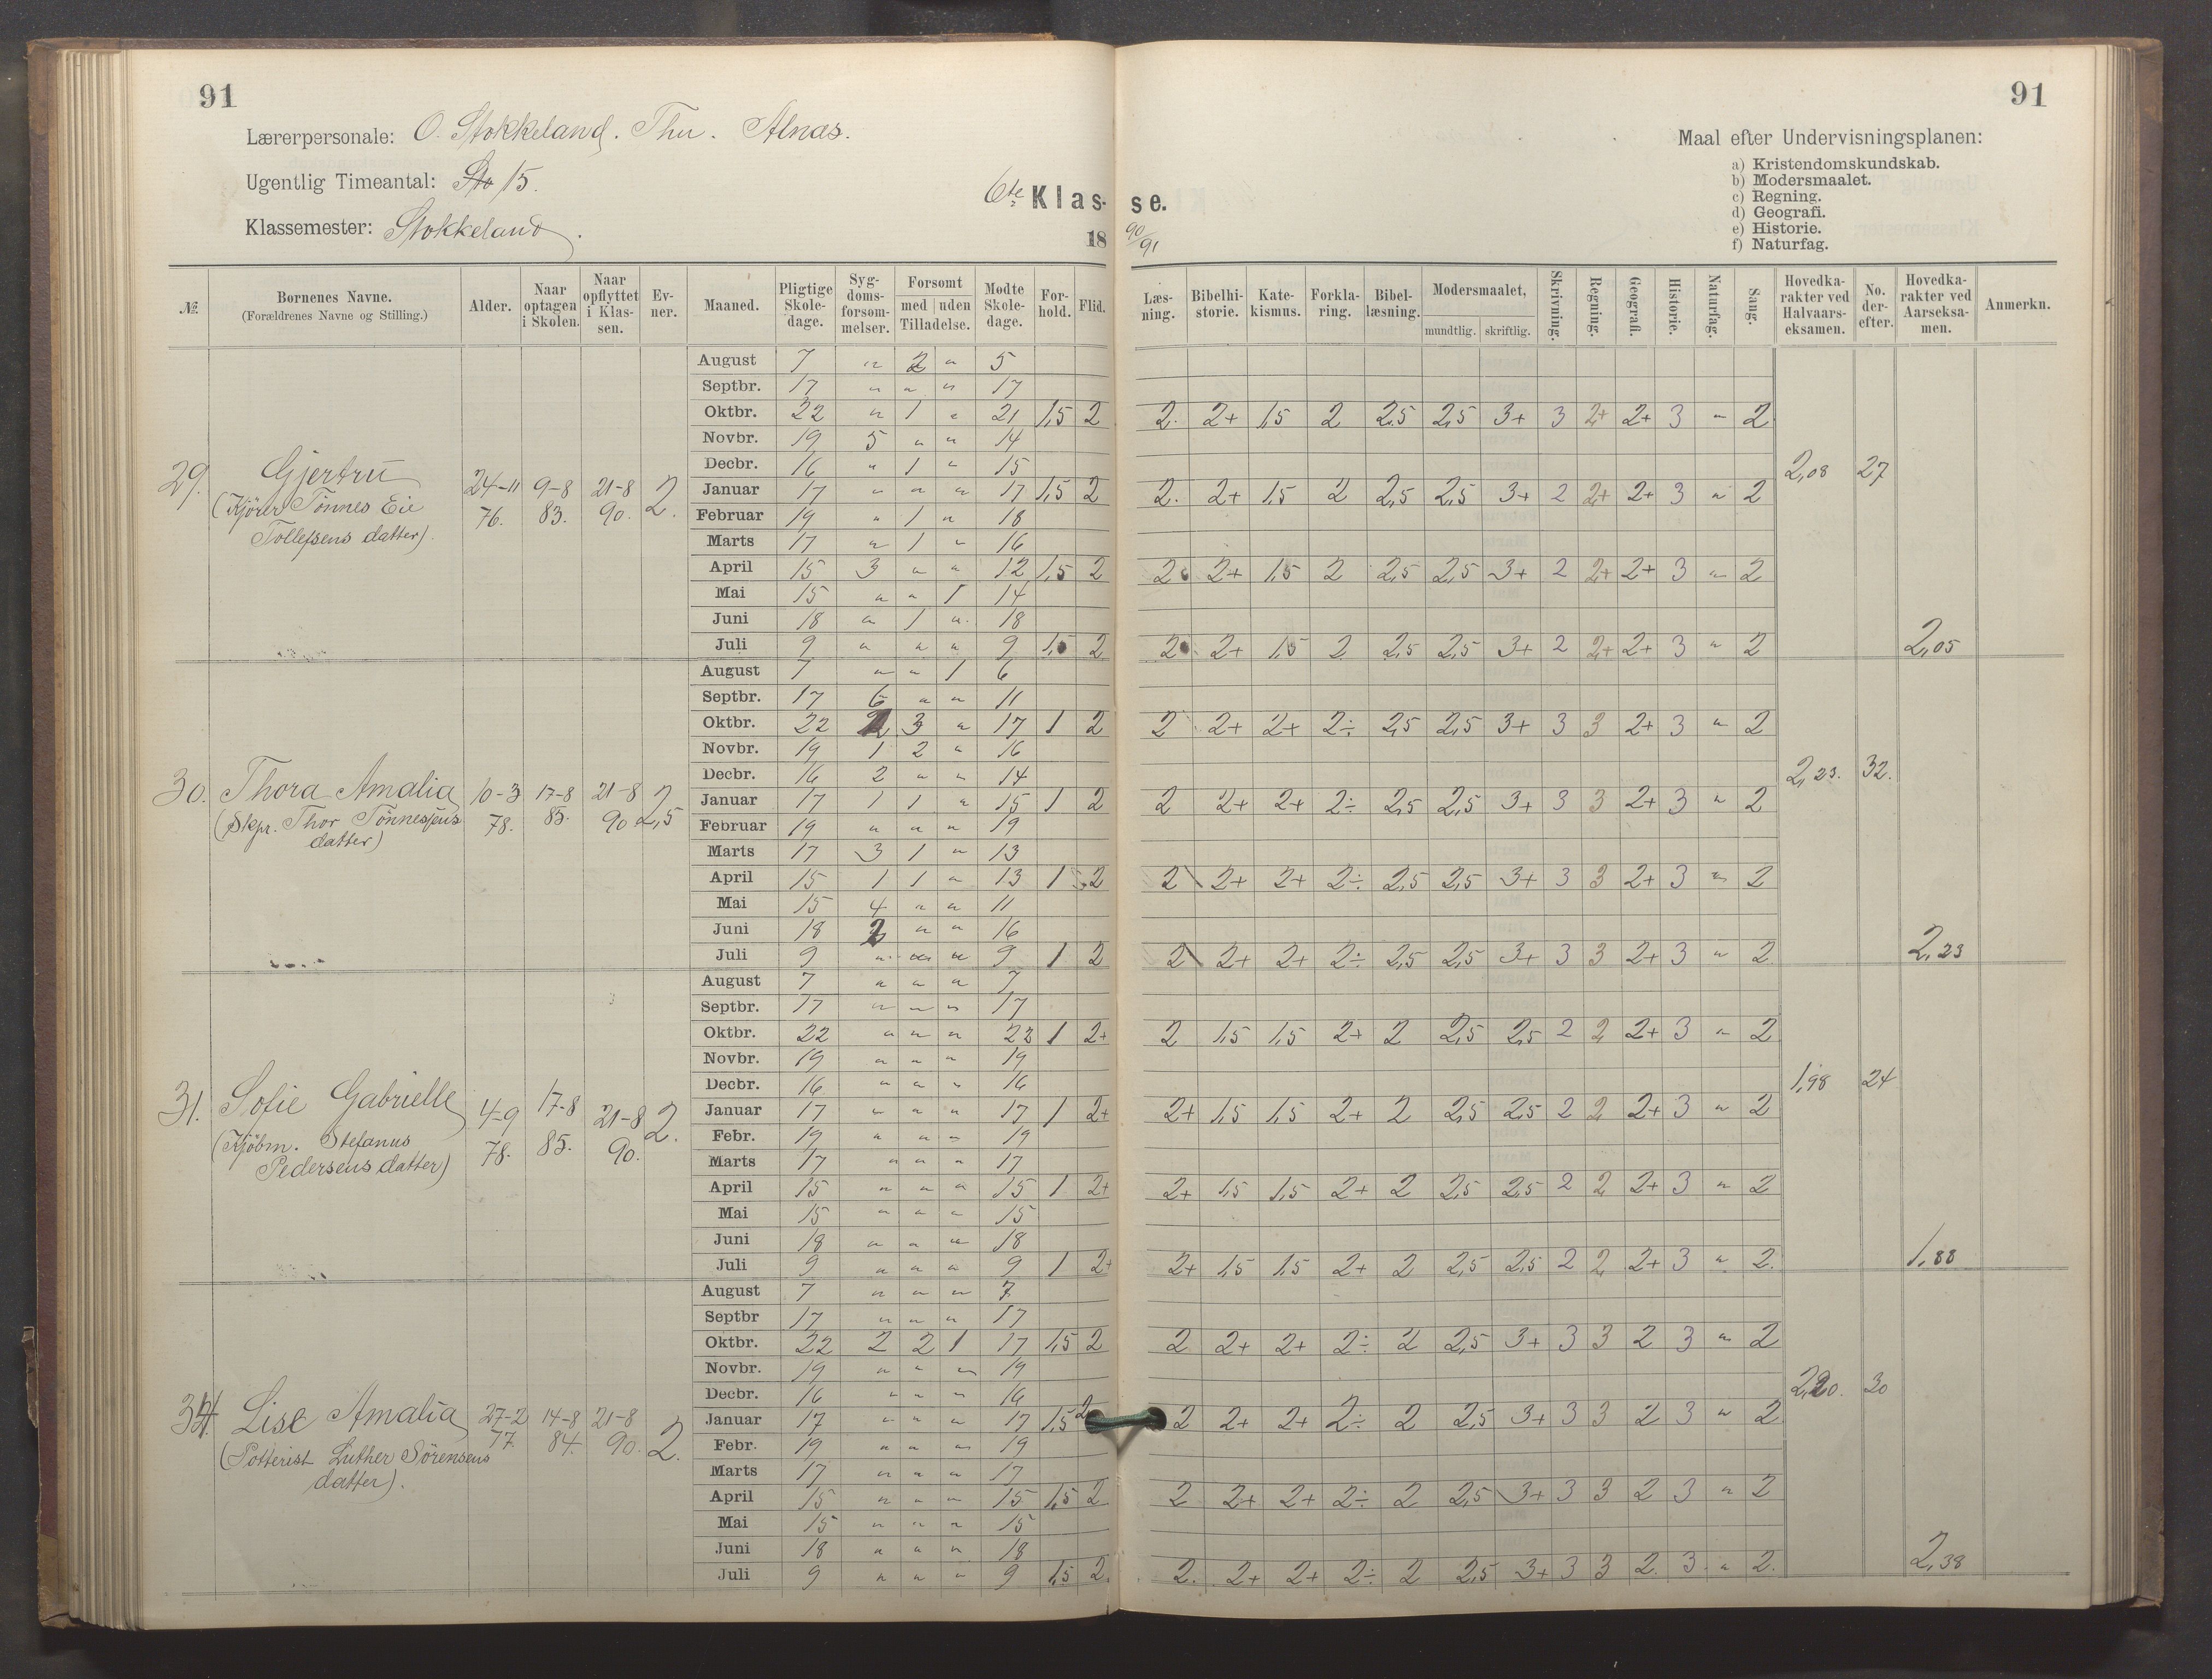 91
91
Lærerpersonale: O. Stokkeland. Thu. Alnæs.
Ugentlig Timeantal: Sto 15.
Klassemester: Stokkeland.
6te Klasse.
18 90/91
Maal efter Undervisningsplanen:
a) Kristendomskundskab.
b) Modersmaalet.
c) Regning.
d) Geografi.
e) Historie.
f) Naturfag.
№ Børnenes Navne. (Forældrenes Navne og Stilling.) Alder. Naar optagen i Skolen. Naar opflyttet i Klassen. Evner. Maaned. Pligtige Skoledage. Sygdomsforsømmelser. Forsømt med uden Tilladelse. Mødte Skoledage. Forhold. Flid. Læsning. Bibelhistorie. Katekismus. Forklaring. Bibellæsning. Modersmaalet, mundtlig. skriftlig. Skrivning. Regning. Geografi. Historie. Naturfag. Sang. Hovedkarakter ved Halvaarseksamen. No. derefter. Hovedkarakter ved Aarseksamen. Anmerkn.
29. Gjertru
(Kjörer Tönnes Eie
Tollefsens datter).
24-11 76. 9-8 83. 21-8 90. 2.
August 7 " 2 " 5
Septbr. 17 " " " 17
Oktbr. 22 " 1 " 21 1,5 2 2. 2+ 1,5 2 2,5 2,5 3+ 3 2+ 2+ 3 " 2
Novbr. 19 5 " " 14
Decbr. 16 " 1 " 15
2,08 27
Januar 17 " " " 17 1,5 2 2. 2+ 1,5 2 2,5 2,5 3+ 2 2+ 2+ 3 " 2
Februar 19 " 1 " 18
Marts 17 " 1 " 16
April 15 3 " " 12 1,5 2 2 2+ 1,5 2 2,5 2,5 3+ 2 2+ 2+ 3 " 2
Mai 15 " " 1 14
Juni 18 " 1 " 18
Juli 9 " " " 9 1,5 2 2 2+ 1,5 2 2,5 2,5 3+ 2 2+ 2+ 3 " 2 2,05
30. Thora Amalia
(Skpr. Thor Tönnessens
datter)
10-3 78. 17-8 85. 21-8 90 2,5
August 7 " " 1 6
Septbr. 17 6 " " 11
Oktbr. 22 2 3 " 17 1 2 2 2+ 2+ 2÷ 2,5 2,5 3+ 3 3 2+ 3 " 2
Novbr. 19 1 2 " 16
Decbr. 16 2 " " 14
2,23. 32.
Januar 17 1 1 " 15 1 2 2 2+ 2+ 2÷ 2,5 2,5 3+ 3 3 2+ 3 " 2
Februar 19 " " " 19
Marts 17 3 1 " 13
April 15 1 1 " 13 1 2 2 2+ 2+ 2÷ 2,5 2,5 3+ 3 3 2+ 3 " 2
Mai 15 4 " " 11
Juni 18 2 " " 16
Juli 9 " " " 9 1 2 2 2+ 2+ 2÷ 2,5 2,5 3+ 3 3 2+ 3 " 2 2,23
31. Sofie Gabrielle
(Kjöbm. Stefanus
Pedersens datter)
4-9 78. 17-8 85. 21-8 90. 2.
August 7 " " " 7
Septbr. 17 " " " 17
Oktbr. 22 " " " 22 1 2+ 2 1,5 1,5 2+ 2 2,5 2,5 2 2 2+ 3 " 2
Novbr. 19 " " " 19
Decbr. 16 " " " 16
1,98 24
Januar 17 " " " 17 1 2+ 2+ 1,5 1,5 2+ 2 2,5 2,5 2 2 2+ 3 " 2
Febr. 19 " " " 19
Marts 17 " " " 17
April 15 " " " 15 1 2+ 2+ 1,5 1,5 2+ 2 2,5 2,5 2 2 2+ 3 " 2
Mai 15 " " " 15
Juni 18 " " " 18
Juli 9 " " " 9 1 2+ 2+ 1,5 1,5 2+ 2 2,5 2,5 2 2 2+ 3 " 2. 1,88
Lise Amalia
(Potterist Luther Sörensens
datter).
27-2 77. 14-8 84. 21-8 90. 2.
August 7 " " " 7
Septbr 17 " " " 17
Oktbr. 22 2 2 1 17 1,5 2 2 2+ 2+ 2÷ 2 2,5 3+ 3 3 2 3 " 2
Novbr. 19 " " " 19
Decbr. 16 " " " 16
2,20. 30
Januar 17 " " " 17 1,5 2 2 2+ 2+ 2÷ 2 2,5 3+ 3 3 2 3 " 2
Febr. 19 " " " 19
Marts 17 " " " 17
April 15 " " " 15 1,5 2 2 2+ 2+ 2÷ 2 2,5 3+ 3 3 2 3 " 2
Mai 15 " " " 15
Juni 18 " " " 18
Juli 9 " " " 9 1,5 2. 2. 2+ 2+ 2÷ 2 2,5 3+ 3 3 2. 3. " 2. 2,38